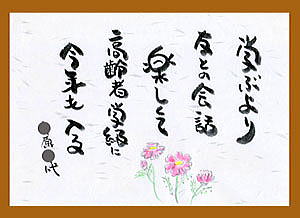 学ぶより
友との会話
楽しくて
高齢者学級に
今年も入る